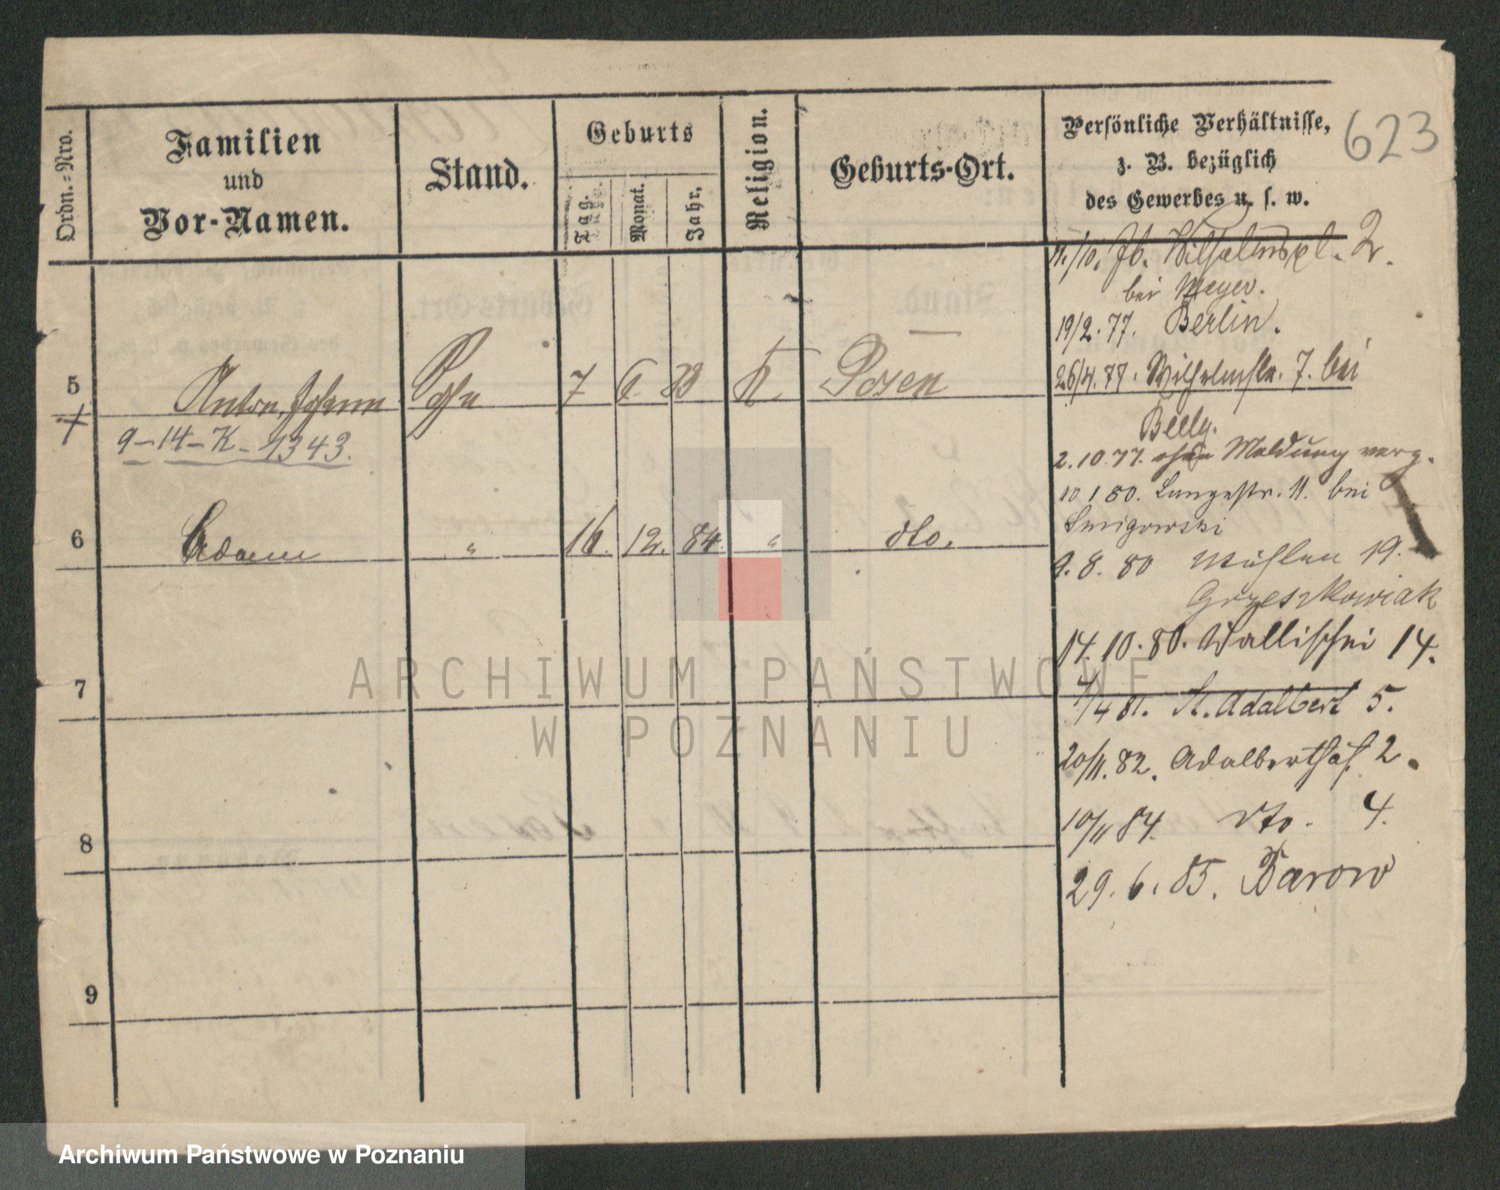 623
Ordn.-Nro.
Familien
und
Vor-Namen.
Stand.
Geburts
Tag.
Monat.
Jahr.
Religion.
Geburts-Ort.
Persönliche Verhältnisse,
z. B. bezüglich
des Gewerbes u. s. w.
5 Anton, Johann Sohn 7 6 K. Posen
9-14-K-1343.
6 Adam " 16. 12. 84. " dto.
7
8
9
Wilhelmspl. 2.
bei Meyer.
19/2.77. Berlin.
26/4.77. Wilhelmstr. 7. bei
Beely.
2.10.77. ohne Meldung verz.
10.1.80. Langestr. 11. bei
Smigowski
9.8.80 Mühlen 19.
Grzeszkowiak
14.10.80. Wallischei 14.
4/4 81. St. Adalbert 5.
20/11.82. Adalberthof 2.
10/11 84. dto. 4.
29.6.85. Barow
ARCHIWUM PAŃSTWOWE
W POZNANIU
Archiwum Państwowe w Poznaniu